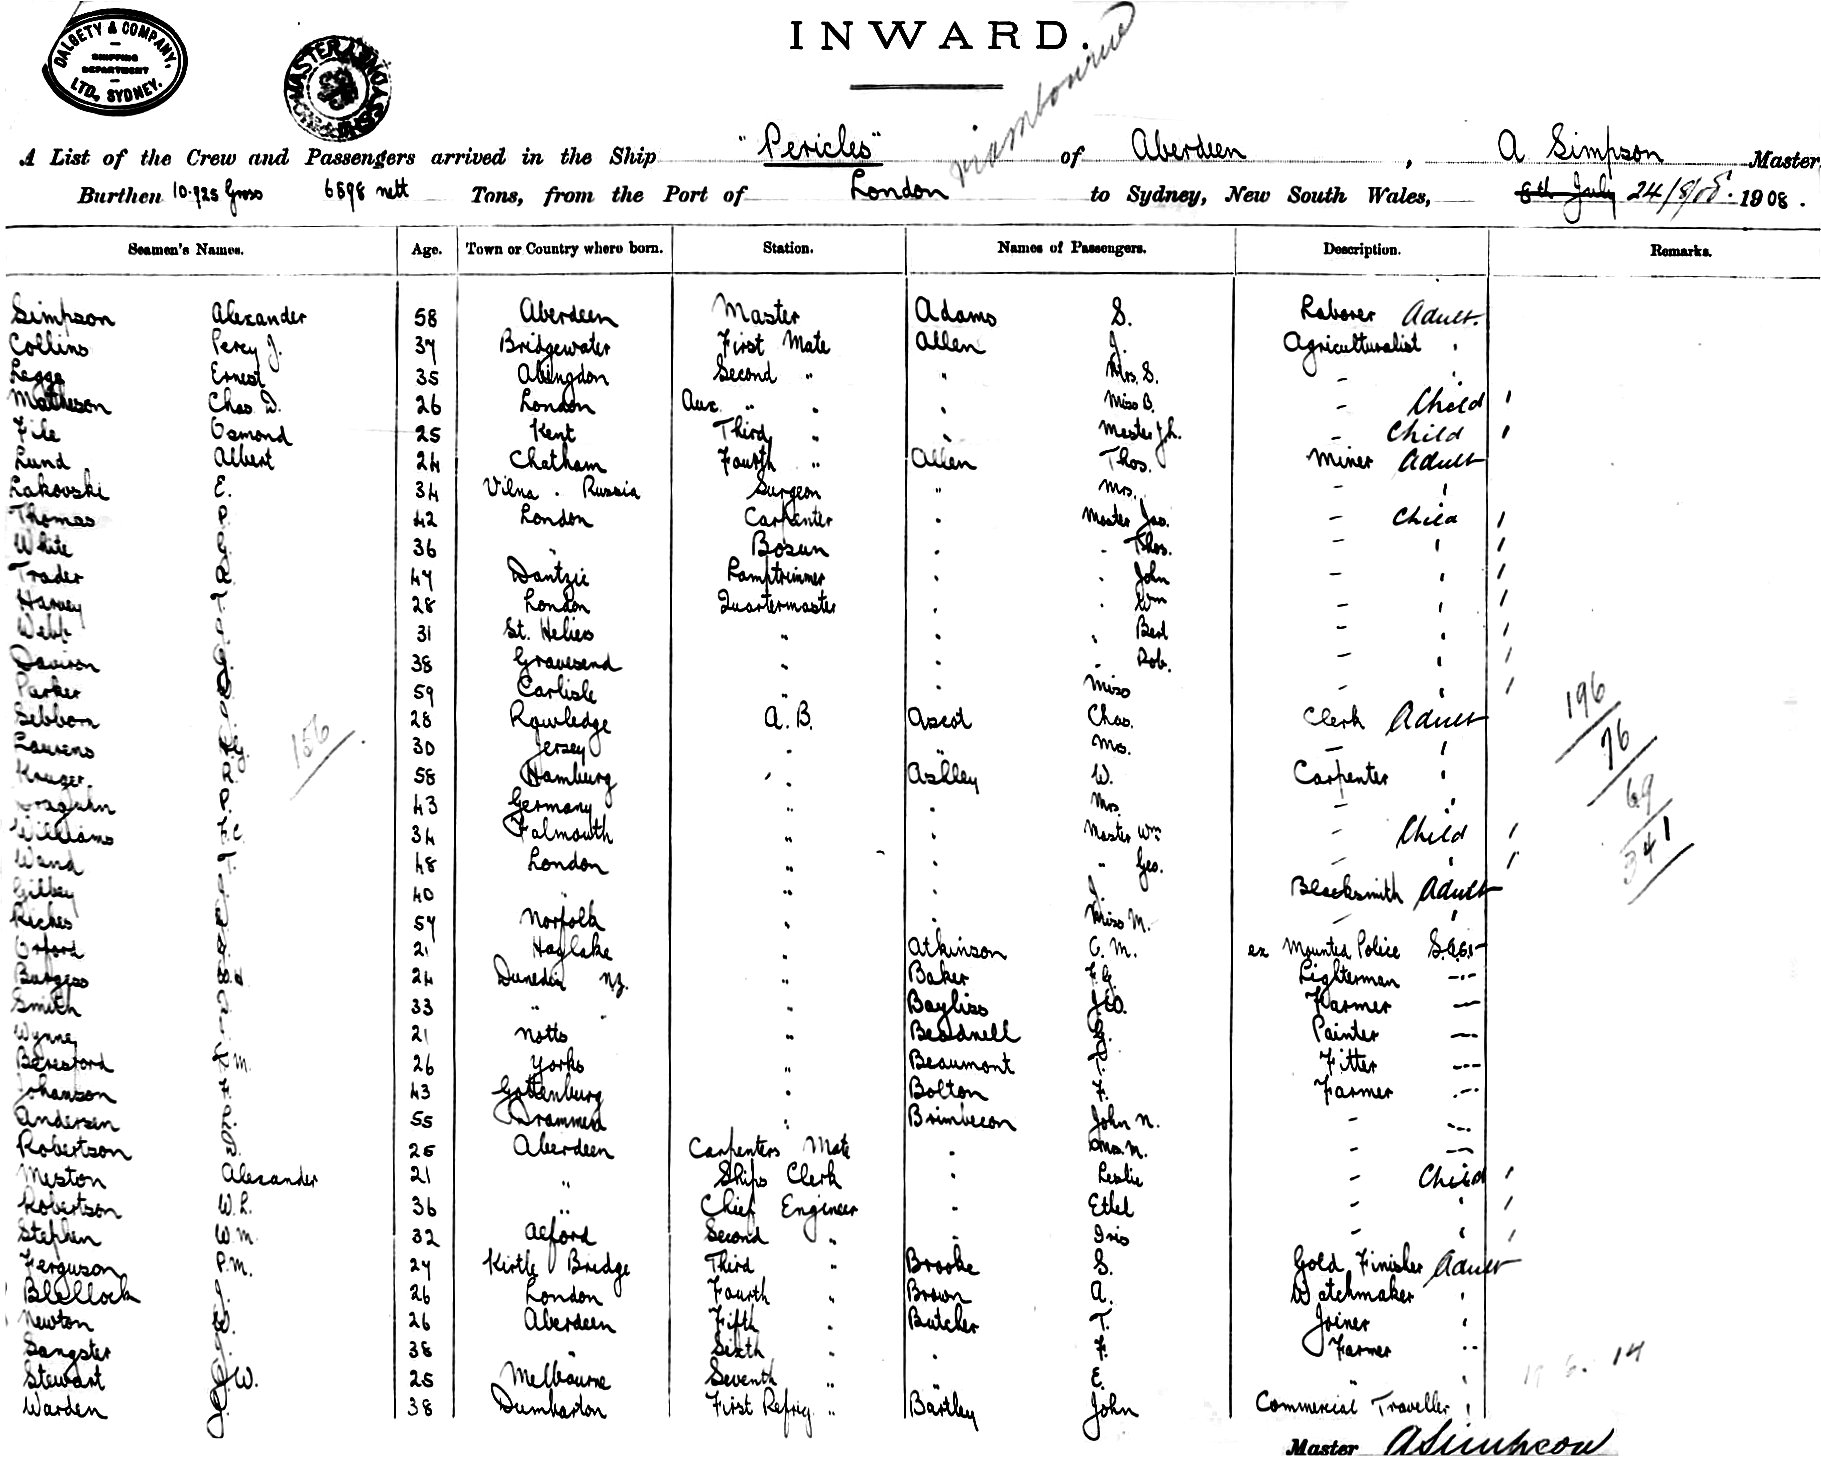 DALGETY & COMPANY,
SHIPPING
DEPARTMENT
LTD., SYDNEY.
INWARD.
A List of the Crew and Passengers arrived in the Ship "Pericles" of Aberdeen, A Simpson Master
Burthen 10.925 Gross 6898 nett Tons, from the Port of London to Sydney, New South Wales, 8th July 24/8/08. 1908.
Seamen's Names. Age. Town or Country where born. Station. Names of Passengers. Description. Remarks.
Simpson Alexander 58 Aberdeen Master Adams S. Laborer Adult.
Collins Percy J. 37 Bridgewater First Mate Allen J. Agriculturalist "
Legge Ernest 35 Abingdon Second " " Mrs. S. – "
Matheson Chas D. 26 London Aux. " " " Miss B. – Child
File Osmond 25 Kent Third " " Master J.h. – Child
Lund Albert 24 Chatham Fourth " Allen Thos. Miner Adult
Lakovski E. 34 Vilna . Russia Surgeon " Mrs. – "
Thomas P. 42 London Carpenter " Master Jas. – Child
White 36 " Bosun " " Thos. – "
Trader 47 Dantzic Lamptrimmer " " John – "
Harvey 28 London Quartermaster " " Wm – "
Webb 31 St. Heliers " " " Bert – "
Davison 38 Gravesend " " " Rob. – "
Parker 59 Carlisle " " Miss – "
Sebborn 28 Rowledge A.B. Ascot Chas. Clerk Adult
Laurens 30 Jersey " " Mrs. – "
156
Kruger R. 58 Hamburg " Ashley W. Carpenter "
P. 43 Germany " " Mrs. – "
Williams 34 Falmouth " " Master Wm – Child
Wand 48 London " " " Geo. – "
Gilbey 40 " " " J. Blacksmith Adult
Riches 57 Norfolk " " Miss M. – "
Orford 21 Haylake " Atkinson C. M. ex Mounted Police
Burgess 24 Dunedin NZ. " Baker F.G. Lighterman
Smith 33 " " " Bayliss Farmer
Wynne 21 Notts " Beadnell Painter
Beresford 26 Yorks " Beaumont Fitter
Johanson 43 Gottenburg " Bolton F. Farmer
Andersen 55 Drammen " Brimbecon John N. –
Robertson 25 Aberdeen Carpenters Mate " Mrs. N. –
Meston Alexander 21 " Ships Clerk " Leslie – Child
Robertson W.L. 36 " Chief Engineer " Ethel – "
Stephen W.M. 32 Alford Second " " Iris – "
Ferguson P.M. 27 Kirtle Bridge Third " Brooke S. Gold Finisher Adult
Blellock J. 26 London Fourth " Brown A. Watchmaker "
Newton W. 26 Aberdeen Fifth " Butcher T. Joiner "
Sangster 38 " Sixth " " F. Farmer "
Stewart J.W. 25 Melbourne Seventh " " E. " "
Warden 38 Dumbarton First Refrig. " Bartley John Commercial Traveller "
196
76
69
341
14
Master ASimpson